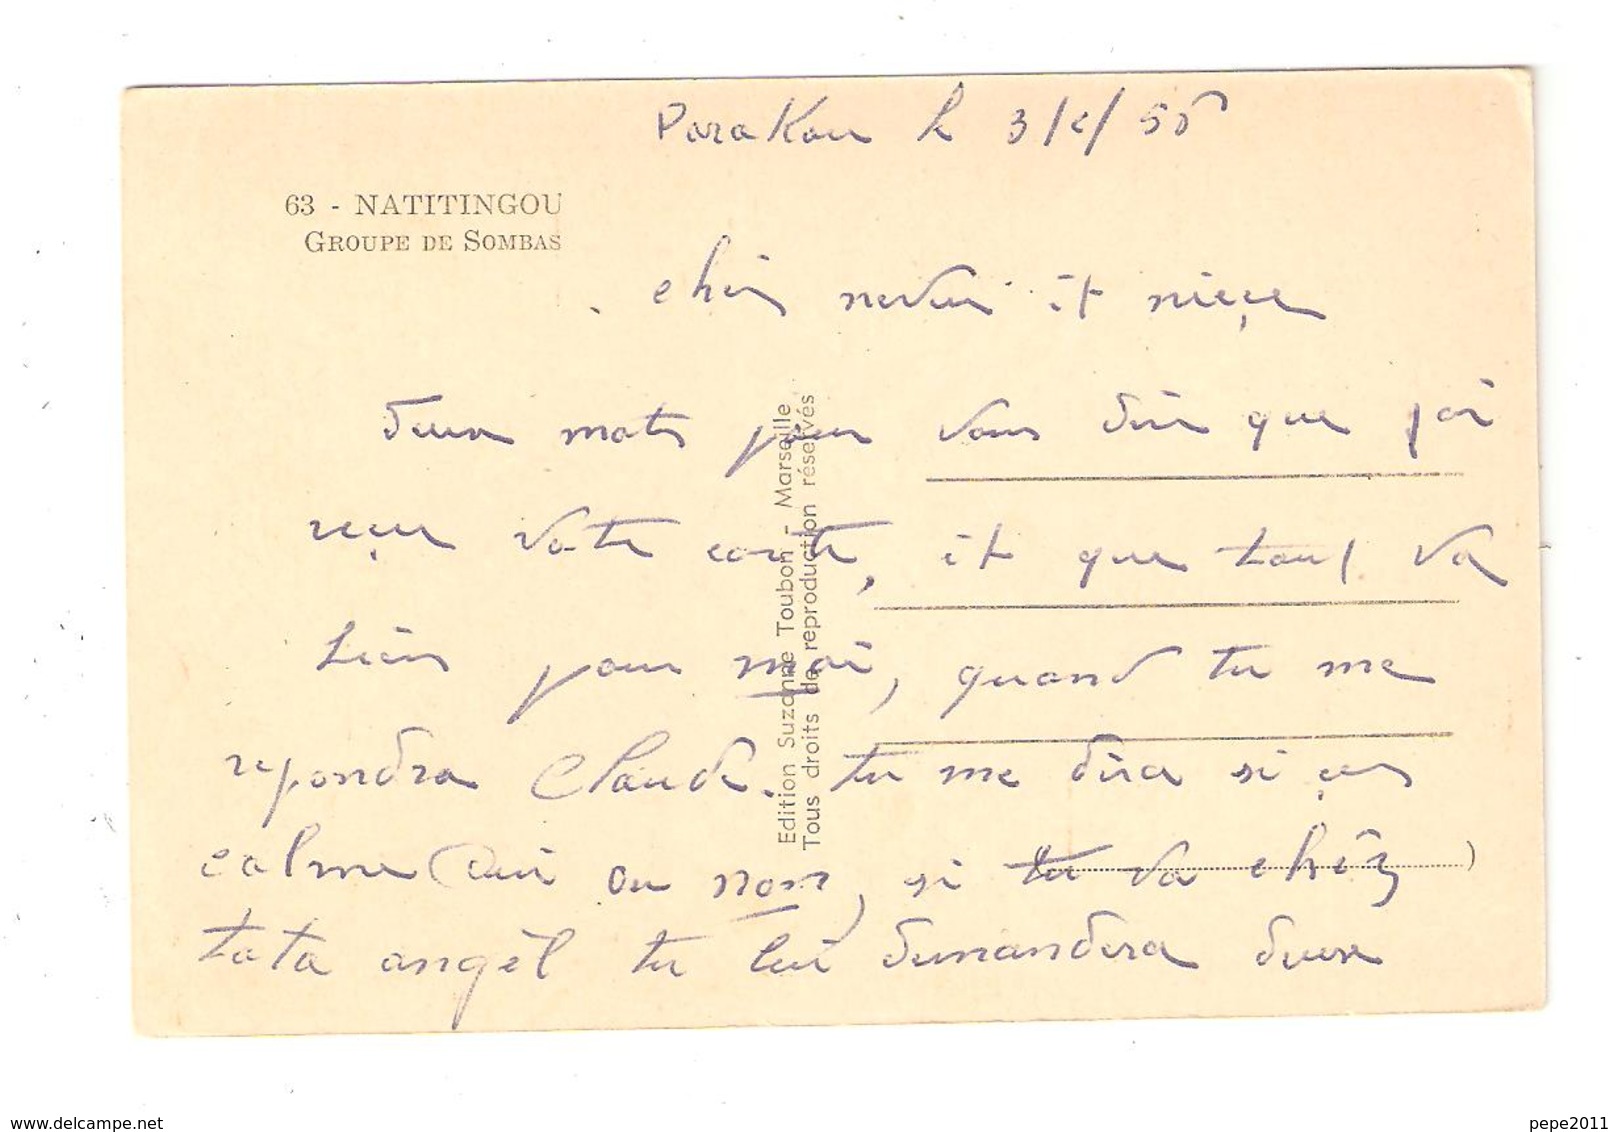 Parakou le 3/2/56
63 - NATITINGOU
GROUPE DE SOMBAS
cher neveu et nièce
deux mots pour vous dire que j'ai
reçu votre carte, et que tout va
bien pour moi, quand tu me
repondra Claude. tu me dira si
calme oui ou non, si tu va chez
tata angèl tu lui demandera deux
Edition Suzanne Toubon - Marseille
Tous droits de reproduction réservés
www.delcampe.net
pepe2011